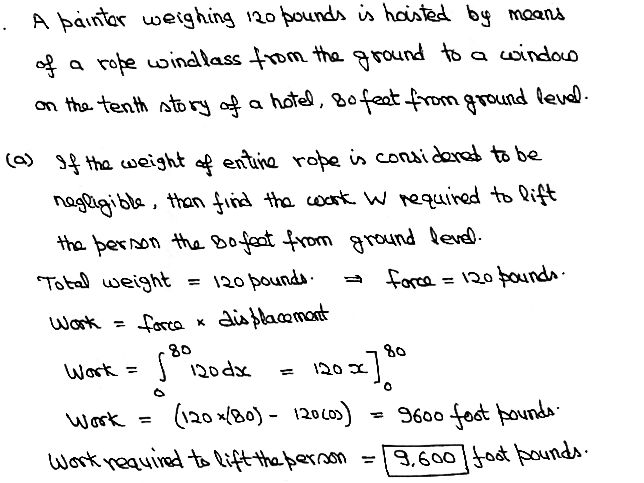 . A painter weighing 120 pounds is hoisted by means
of a rope windlass from the ground to a window
on the tenth story of a hotel, 80 feet from ground level.
(a) If the weight of entire rope is considered to be
negligible, then find the work W required to lift
the person the 80 feet from ground level.
Total weight = 120 pounds. ⇒ force = 120 pounds.
Work = force × displacement
Work = ∫₀⁸⁰ 120 dx = 120 x]₀⁸⁰
Work = (120×(80) - 120(0)) = 9600 foot pounds.
Work required to lift the person = 9,600 foot pounds.